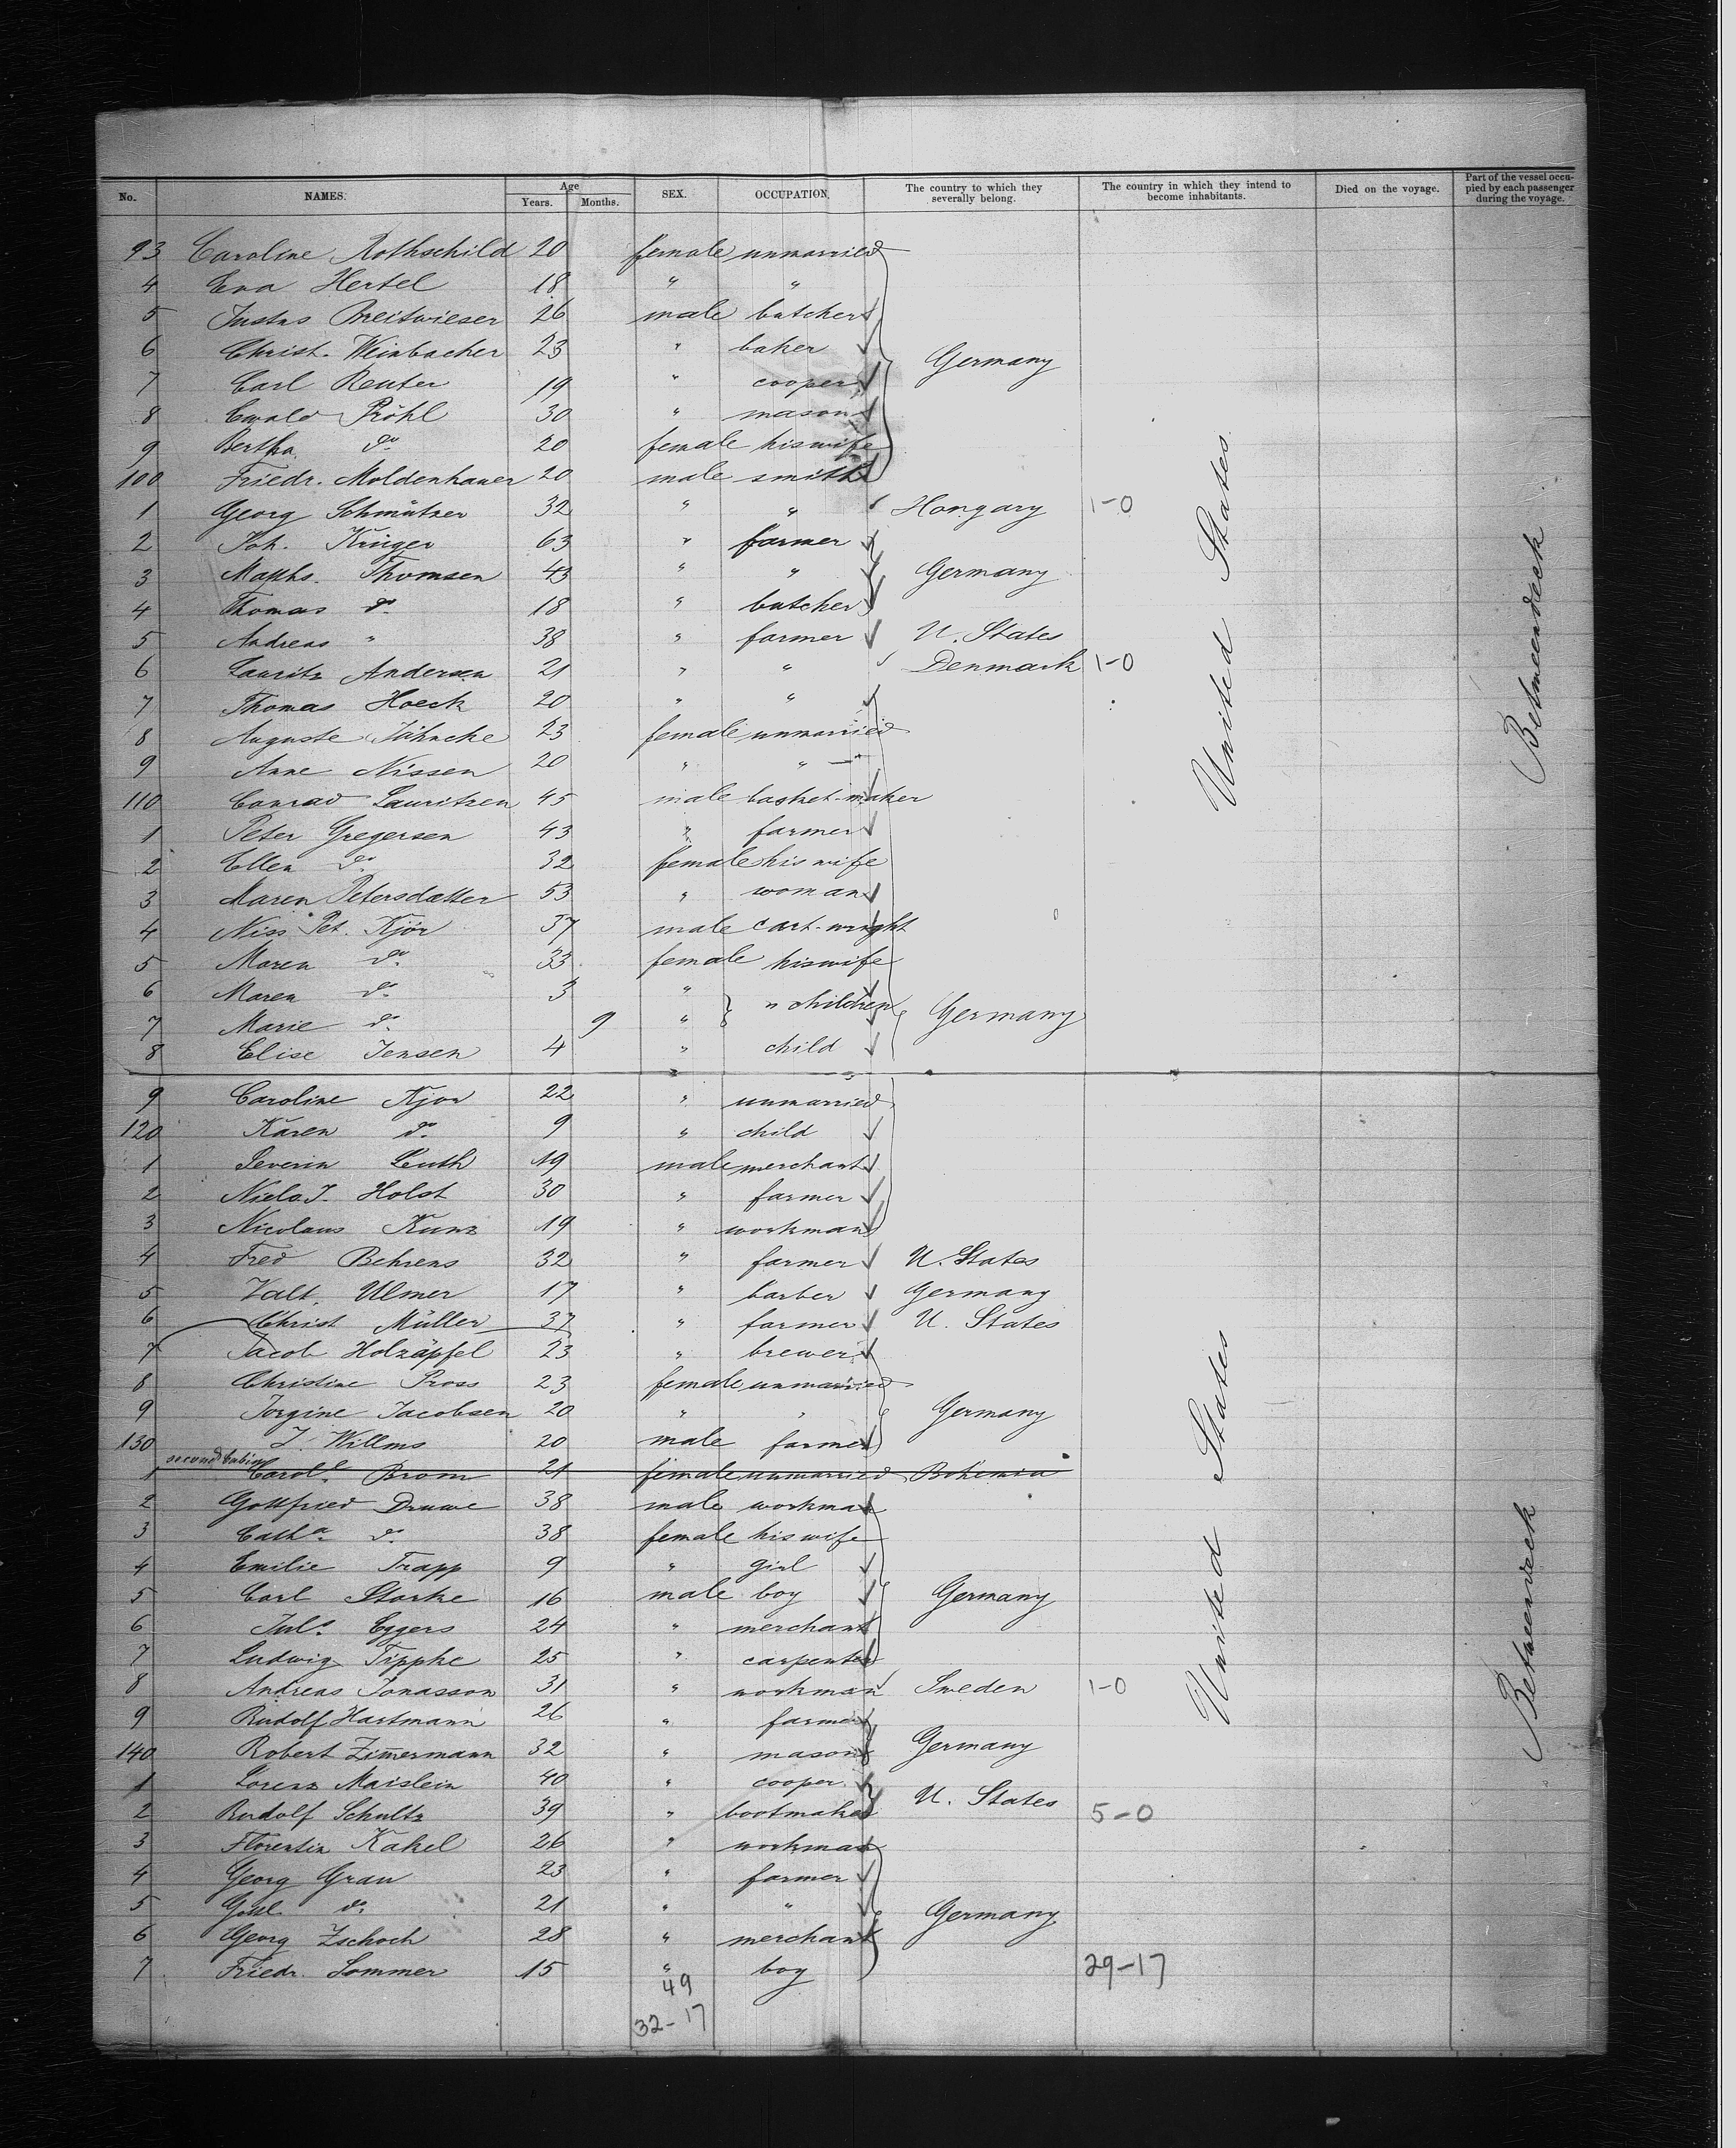 No. NAMES. Age Years. Months. SEX. OCCUPATION. The country to which they severally belong. The country in which they intend to become inhabitants. Died on the voyage. Part of the vessel occupied by each passenger during the voyage.
93 Caroline Rothschild 20 female unmarried
4 Eva Hertel 18 " "
5 Justus Breitwieser 26 male butcher
6 Christ. Weinbacher 23 " baker Germany
7 Carl Reuter 19 " cooper
8 Ewald Pröhl 30 " mason
9 Bertha do 20 female his wife
100 Friedr. Moldenhauer 20 male smith
1 Georg Schmützer 32 " " Hongary 1-0
2 Joh. Krüger 63 " farmer
3 Matths. Thomsen 43 " " Germany
4 Thomas do 18 " butcher
5 Andreas " 38 " farmer U. States
6 Lauritz Andersen 21 " " Denmark 1-0
7 Thomas Hoeck 20 " "
8 Auguste Jähncke 23 female unmarried
9 Anne Nissen 20 " "
110 Conrad Lauritzen 45 male basket-maker
1 Peter Gregersen 43 " farmer
2 Ellen do 32 female his wife
3 Maren Petersdatter 53 " woman
4 Niss Pet. Kjör 37 male cart-wright
5 Maren do 33 female his wife
6 Maren do 3 " " children
7 Marie do 9 " Germany
8 Elise Jensen 4 " child
United States
Betweendeck
9 Caroline Kjor 22 " unmarried
120 Karen do 9 " child
1 Severin Leuth 19 male merchant
2 Niels J. Holst 30 " farmer
3 Nicolaus Kunz 19 " workman
4 Fred Behrens 32 " farmer U. States
5 Valt. Ulmer 17 " barber Germany
6 Christ Müller 37 " farmer U. States
7 Jacob Holzäpfel 23 " brewer
8 Christine Pross 23 female unmarried
9 Jorgine Jacobsen 20 " " Germany
130 J. Willms 20 male farmer
second Cabin
1 Carol. Brom 21 female unmarried Bohemia
2 Gottfried Druwe 38 male workman
3 Catha do 38 female his wife
4 Emilie Trapp 9 " girl
5 Carl Starke 16 male boy Germany
6 Juls. Eggers 24 " merchant
7 Ludwig Tippke 25 " carpenter
8 Andreas Jonasson 31 " workman Sweden 1-0
9 Rudolf Hartmann 26 " farmer
140 Robert Zimmermann 32 " mason Germany
1 Lorenz Maislein 40 " cooper
2 Rudolf Schultz 39 " bootmaker U. States 5-0
3 Florentin Kakel 26 " workman
4 Georg Grau 23 " farmer
5 do 21 " " Germany
6 Georg Zschoch 28 " merchant
7 Friedr. Sommer 15 " boy 29-17
49
32-17
United States
Betweendeck